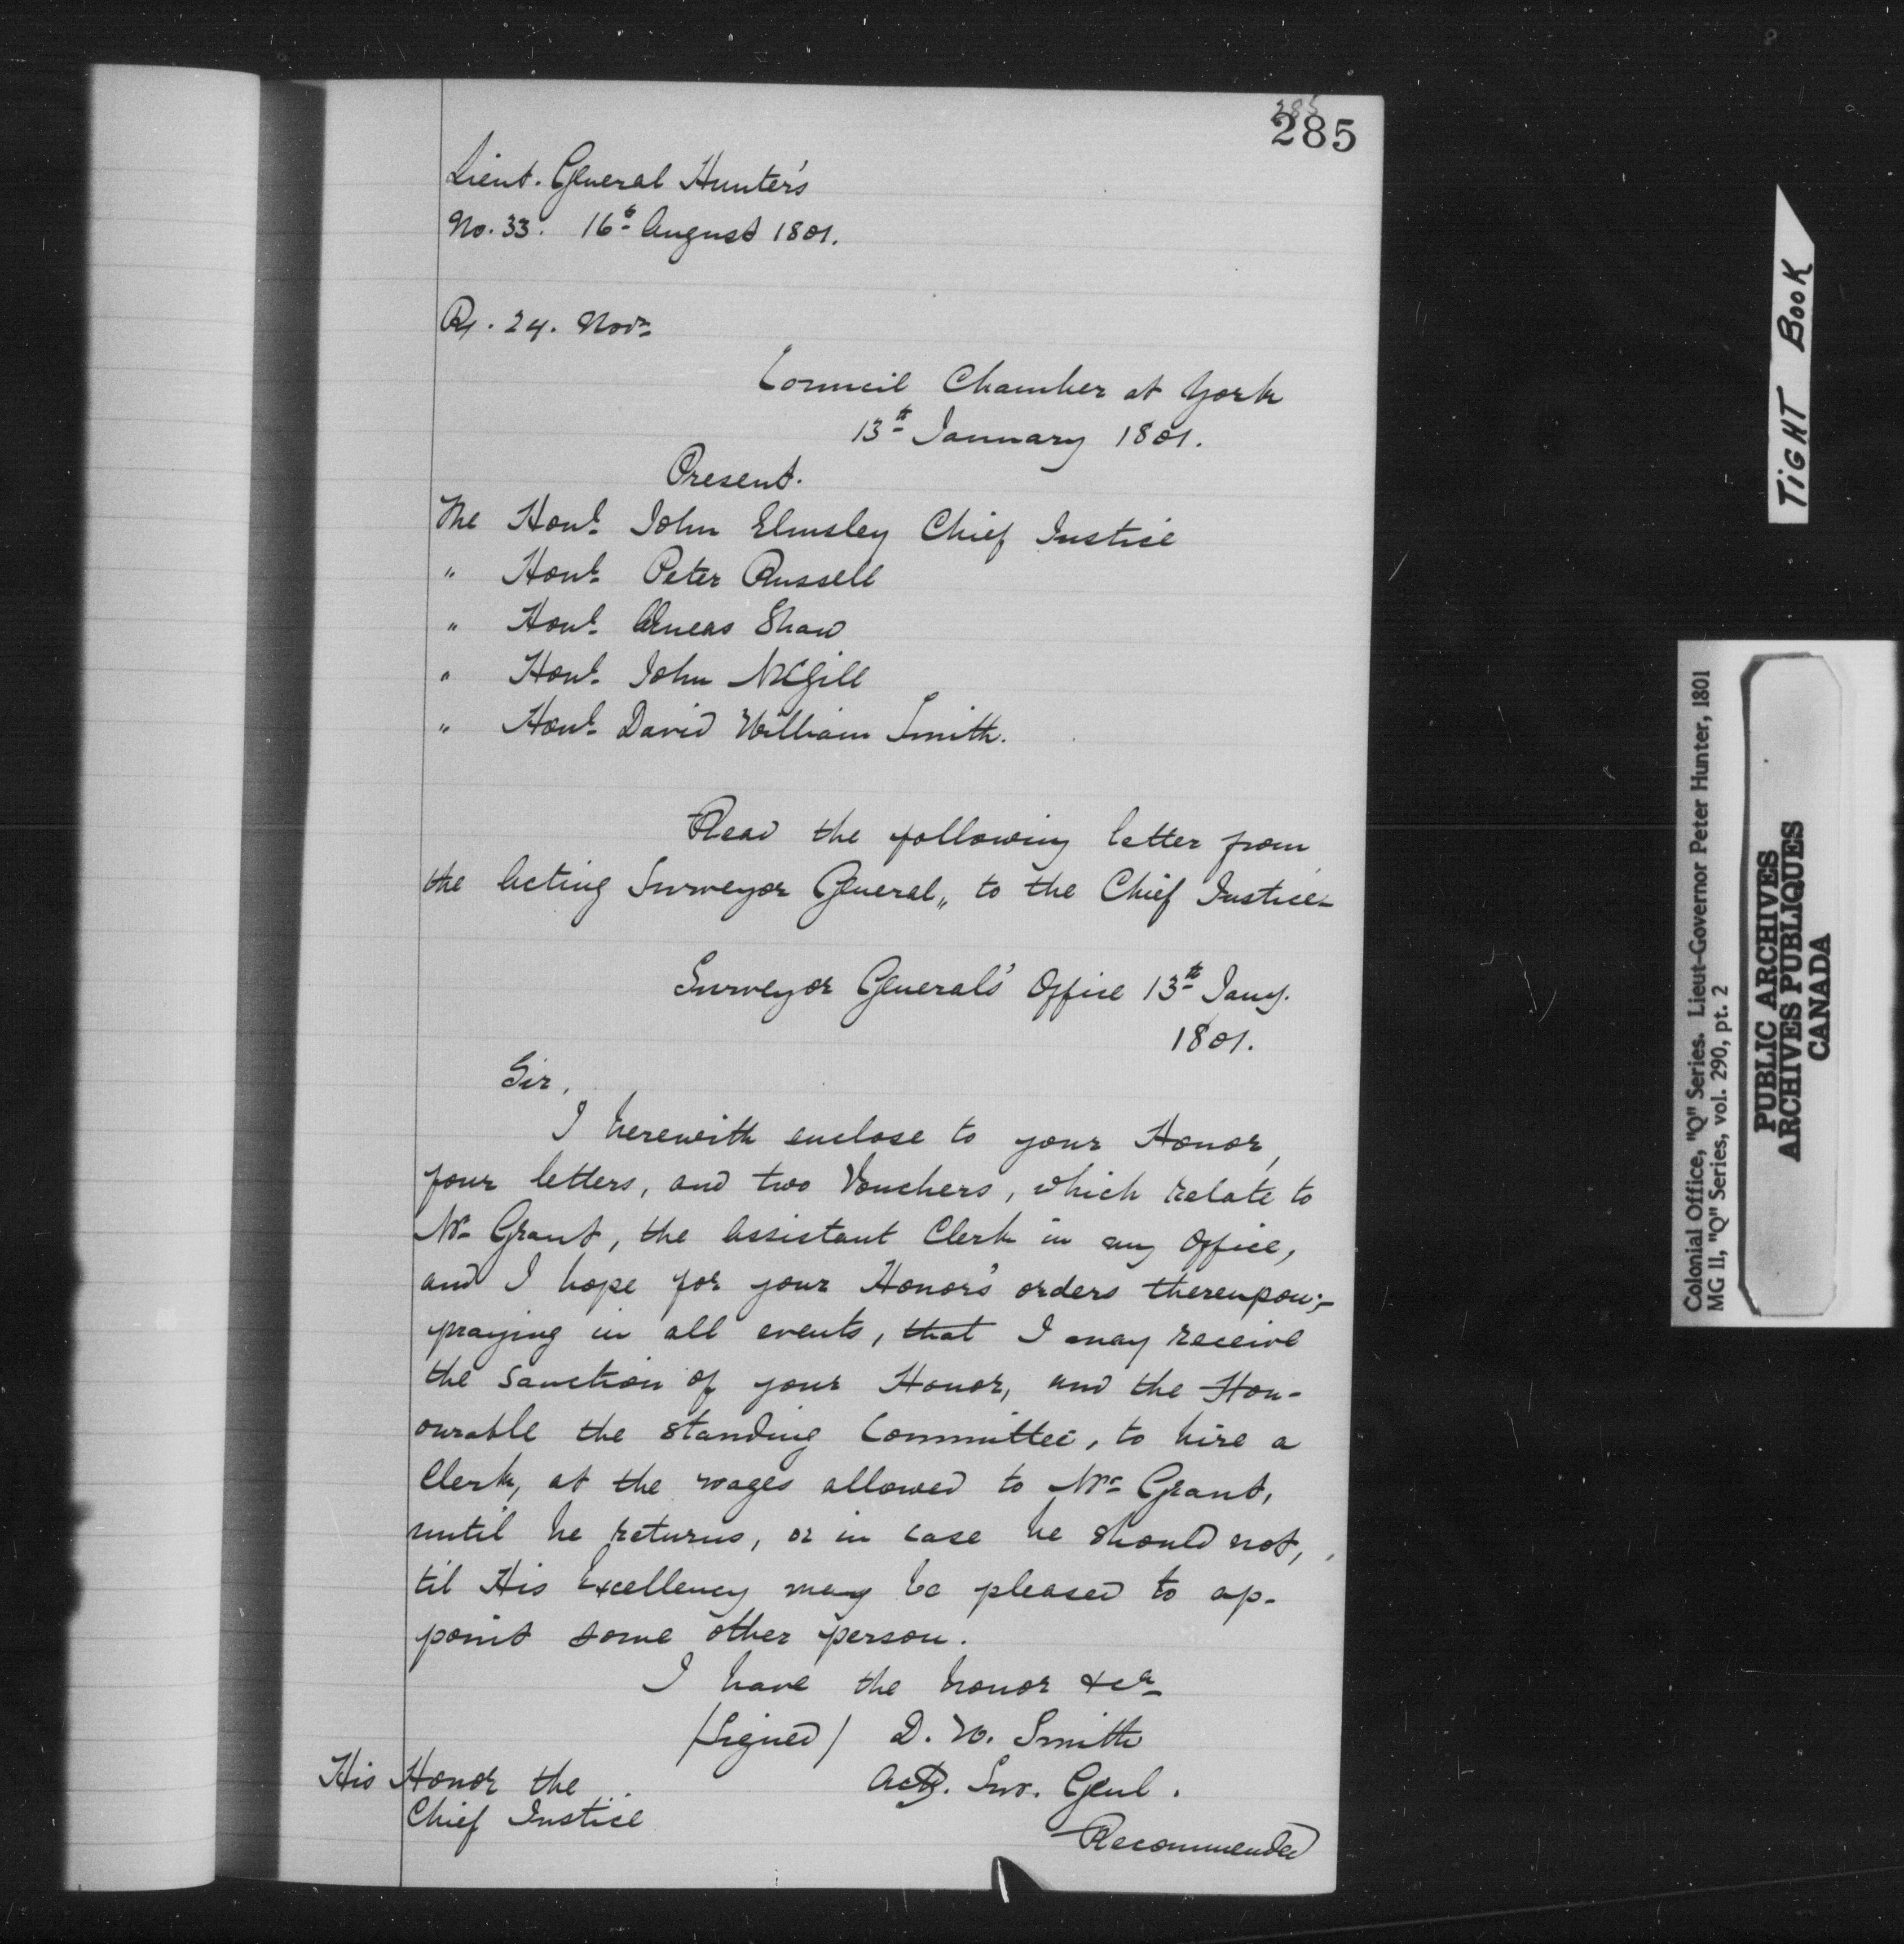 285
285
Lieut. General Hunter's
No. 33. 16th August 1801.
Rx. 24. Novr.
Council Chamber at York
13th January 1801.
Present.
The Honl. John Elmsley Chief Justice
" Honl. Peter Russell
" Honl. Æneas Shaw
" Honl. John McGill
" Honl. David William Smith.
Read the following letter from
the Acting Surveyor General, to the Chief Justice-
Surveyor Generals' Office 13th Jany.
1801.
Sir,
I herewith enclose to your Honor,
four letters, and two Vouchers, which relate to
Mr. Grant, the Assistant Clerk in my Office,
and I hope for your Honor's orders thereupon;-
praying in all events, that I may receive
the sanction of your Honor, and the Hon-
ourable the standing Committee, to hire a
Clerk, at the wages allowed to Mr. Grant,
until he returns, or in case he should not,
til His Excellency may be pleased to ap-
point some other person.
I have the honor &ca
/Signed/ D. W. Smith
His Honor the Actg. Sur. Genl.
Chief Justice
Recommended
TiGHT BooK
Colonial Office, "Q" Series. Lieut-Governor Peter Hunter, 1801
MG 11, "Q" Series, vol. 290, pt. 2
PUBLIC ARCHIVES
ARCHIVES PUBLIQUES
CANADA